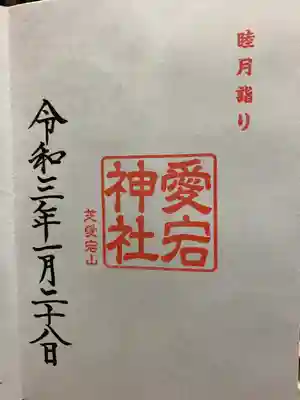 睦月詣り
愛宕
神社
芝愛宕山
令和三年一月二十八日